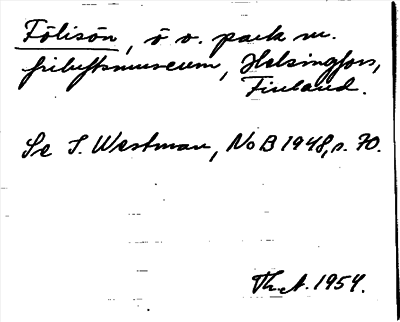 Fölisön, ö o. park m.
friluftsmuseum, Helsingfors,
Finland.
Se I. Westman, NoB 1948, s. 70.
Th. A. 1954.